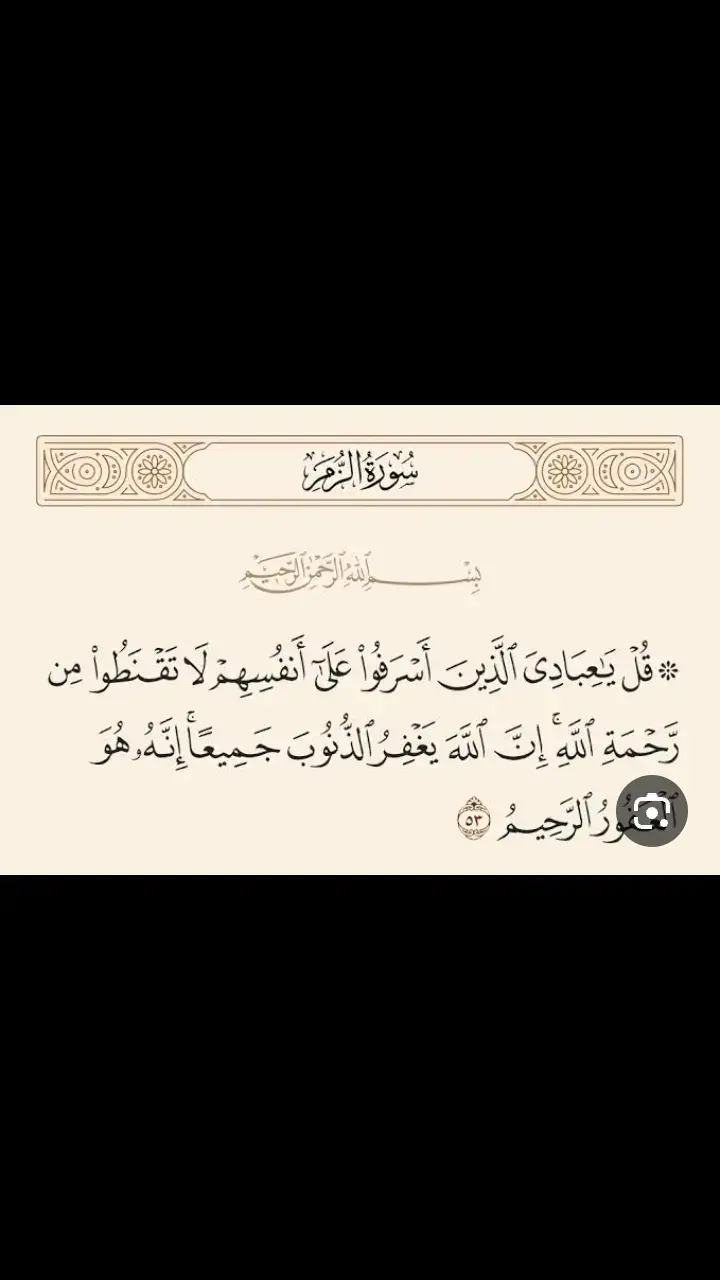 سُورَةُ الزُّمَرِ
بِسْمِ ٱللَّهِ ٱلرَّحْمَٰنِ ٱلرَّحِيمِ
۞ قُلْ يَٰعِبَادِىَ ٱلَّذِينَ أَسْرَفُوا۟ عَلَىٰٓ أَنفُسِهِمْ لَا تَقْنَطُوا۟ مِن
رَّحْمَةِ ٱللَّهِ ۚ إِنَّ ٱللَّهَ يَغْفِرُ ٱلذُّنُوبَ جَمِيعًا ۚ إِنَّهُۥ هُوَ
ٱلْغَفُورُ ٱلرَّحِيمُ ٥٣